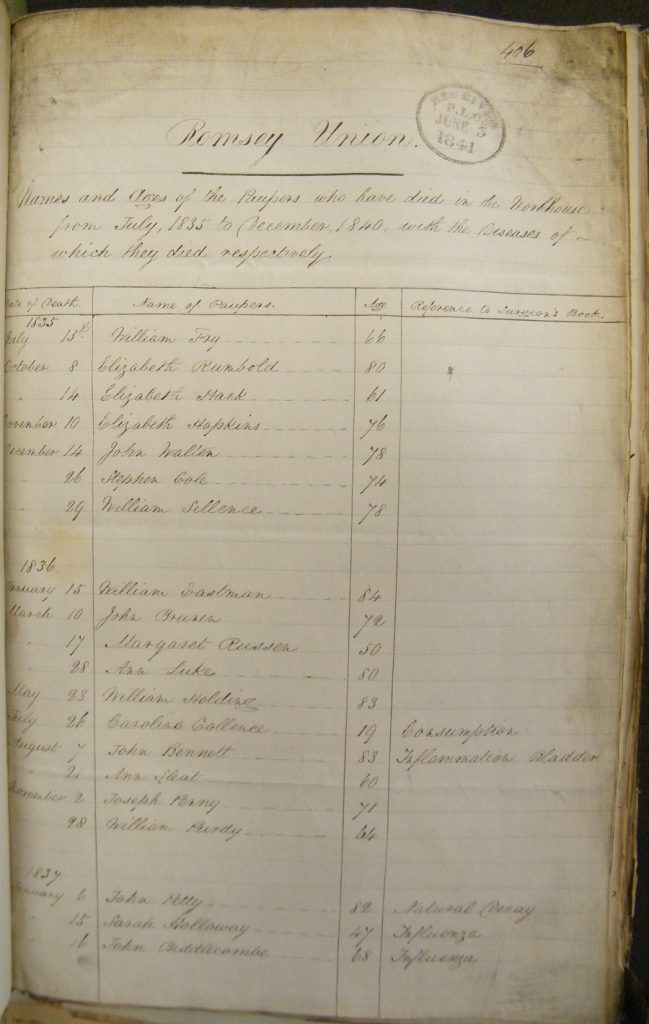 406
RECEIVED
P.L.C.
JUNE 3
1841
Romsey Union.
Names and Ages of the Paupers who have died in the Workhouse
from July, 1835 to December, 1840, with the Diseases of
which they died respectively.
Date of Death. Name of Paupers. Age Reference to Surgeon's Book.
1835
July 15th William Fry 66
October 8 Elizabeth Rumbold 80
" 14 Elizabeth Hack 61
November 10 Elizabeth Hopkins 76
December 14 John Walton 78
26 Stephen Cole 74
29 William Sillence 78
1836
January 15 William Eastman 84
March 10 John 72
" 17 Margaret Russen 50
" 28 Ann Luke 80
May 23 William Holding 83
July 26 Caroline Collence 19 Consumption
August 7 John Bennett 83 Inflammation Bladder
" 21 Ann Sleat 60
November 2 Joseph Penny 71
28 William Purdy 64
1837
January 6 John Petty 82 Natural Decay
" 15 Sarah Holloway 47 Influenza
16 John Biddlecombe 68 Influenza